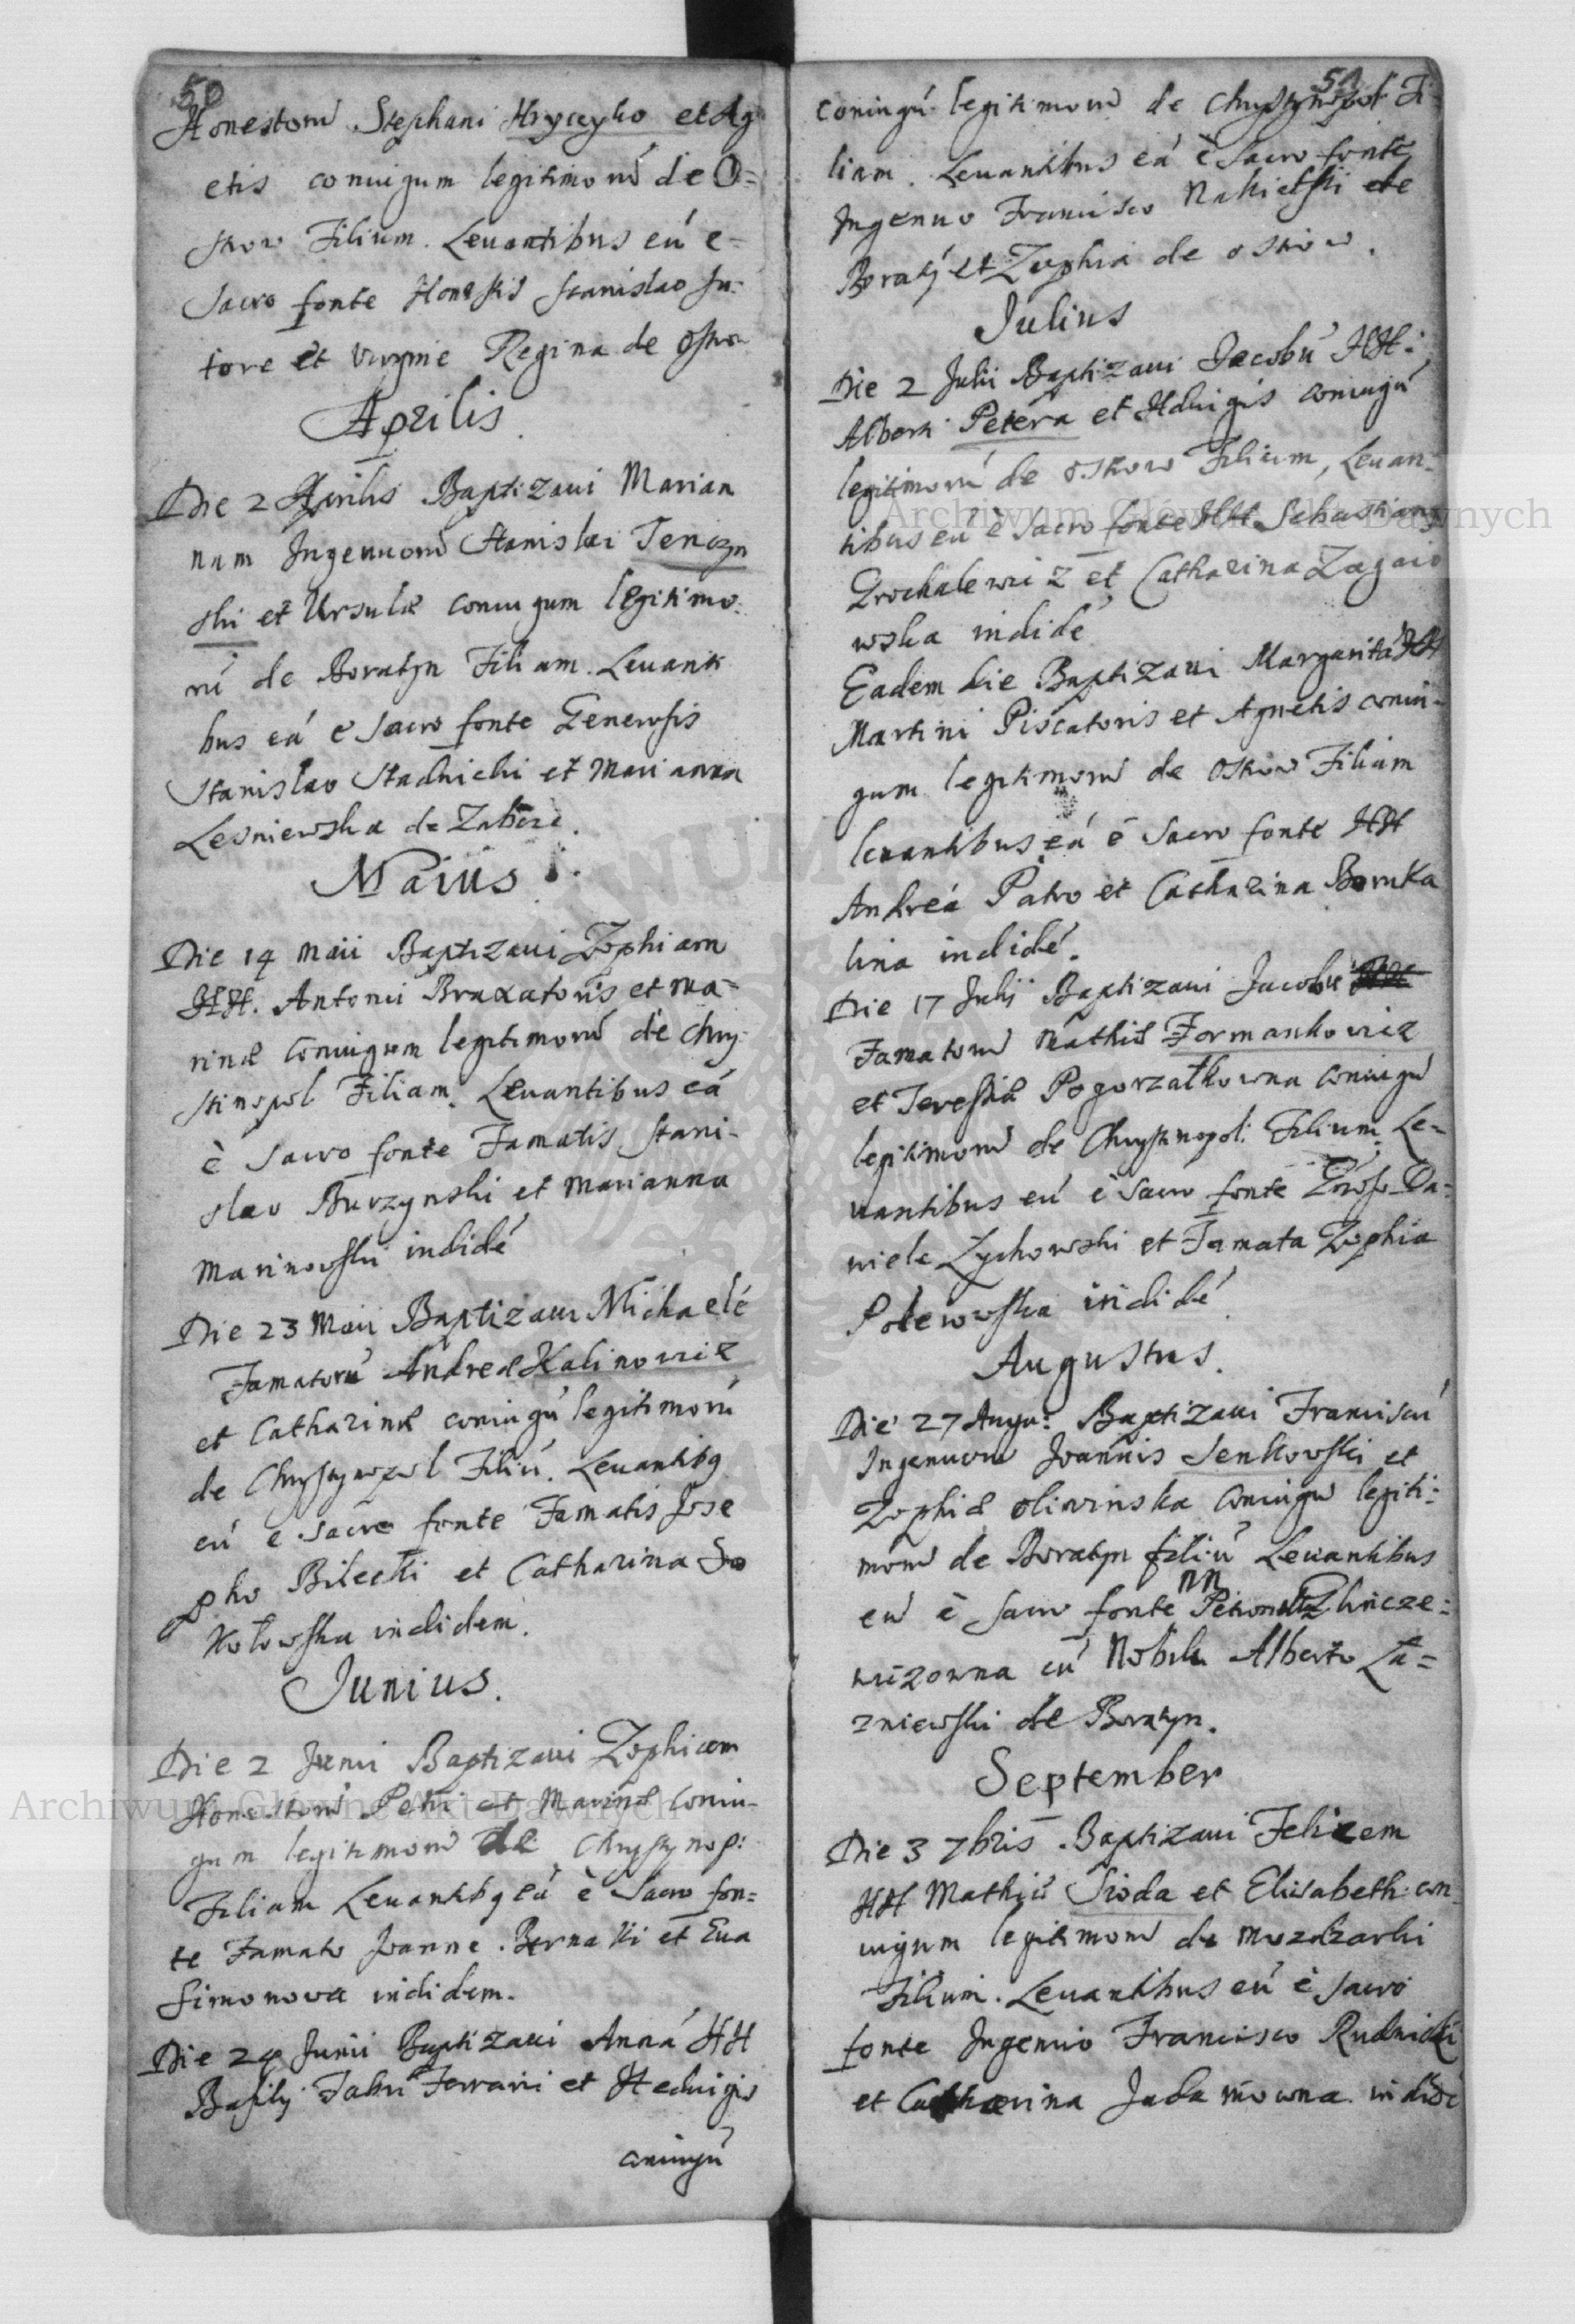 50
Honestorũ Stephani Hryceyko et Ag
etis coniugum legitimorũ de O=
skow Filium. Levantibus eũ e-
Sacro fonte Honestis Stanislao Su-
tore et virgine Regina de Oskow
Aprilis.
Die 2 Aprilis Baptizavi Marian
nam Ingenuorũ Stanislai Tenczyn
ski et Ursulæ coniugum legitimo-
rũ de Boratyn Filiam. Levanti
bus eã e Sacro fonte Generosis
Stanislao Stadnicki et Marianna
Lesniewska de
Maius.
Die 14 Maii Baptizavi Zophiam
HH. Antonii Braxatoris et Ma-
rinæ coniugum legitimorũ de Chry-
stinopol Filiam. Levantibus eã
è Sacro fonte Famatis Stani-
slao Burzynski et Marianna
Marinowski indidẽ
Die 23 Maii Baptizavi Michaelẽ
Famatorũ Andreæ Kalinowicz
et Catharinæ coniugũ legitimorũ
de Chrystynopol Filiũ. Levantibq
eũ e Sacro fonte Famatis Jose
pho Bilecki et Catharina So
kołowska indidem.
Junius.
Die 2 Junii Baptizavi Zophiam
Honestorũ Petri et Marinæ coniu-
gum legitimorũ de Chrystynop:
Filiam Levantibq eã è Sacro fon=
te Famato Joanne Bernaki et Eva
Simonowa indidem.
Die 24 Junii Baptizavi Annã HH
Basilij Fabri Ferrarii et Hedvigis
coniugũ
51
coniugũ legitimorũ de Chrystynopol Fi
liam. Levantibus eã è Sacro fonte
Ingenuo Francisco Nakielski de
Boratỹ et Zophia de Oskow.
Julius
Die 2 Julii Baptizavi Jacobũ HH:
Alberti Petera et Hdvigis coniugũ
legitimorũ de Oskow Filium, Levan-
tibus eũ è Sacro fonte HH Sebastiano
Grochalewicz et Catharina Zagaio
wska indidẽ
Eadem die Baptizavi Margaritã HH
Martini Piscatoris et Agnetis coniu-
gum legitimorũ de Oskow Filiam
levantibus eã è Sacro fonte HH
Andreã Patro et Catharina
lina indidẽ.
Die 17 Julij Baptizavi Jacobũ
Famatorũ Mathiæ Formankowicz
et Teressiæ Pogorzałkowna coniugũ
legitimorũ de Chrystinopol: Filium. Le-
vantibus eũ è Sacro fonte Groso Da-
niele Zychowski et Famata Zophia
Polewowska indidẽ
Augustus.
Die 27 Augu: Baptizavi Franciscũ
Ingenuorũ Joannis Senkowski et
Zophiæ Oliwinska coniugũ legiti-
morũ de Boratyn filiũ Levantibus
eũ è Sacro fonte nn
wizowna cũ Nobili Alberto Ła=
zniewski de Boratyn.
September
Die 3 7bris Baptizavi Felicem
HH Mathiæ Sioda et Elisabeth con
iugum legitimorũ de Mozdzarki
Filium. Levantibus eũ è Sacro
fonte Ingenuo Francisco Rudnicki
et Catharina Jadamowna indidẽ